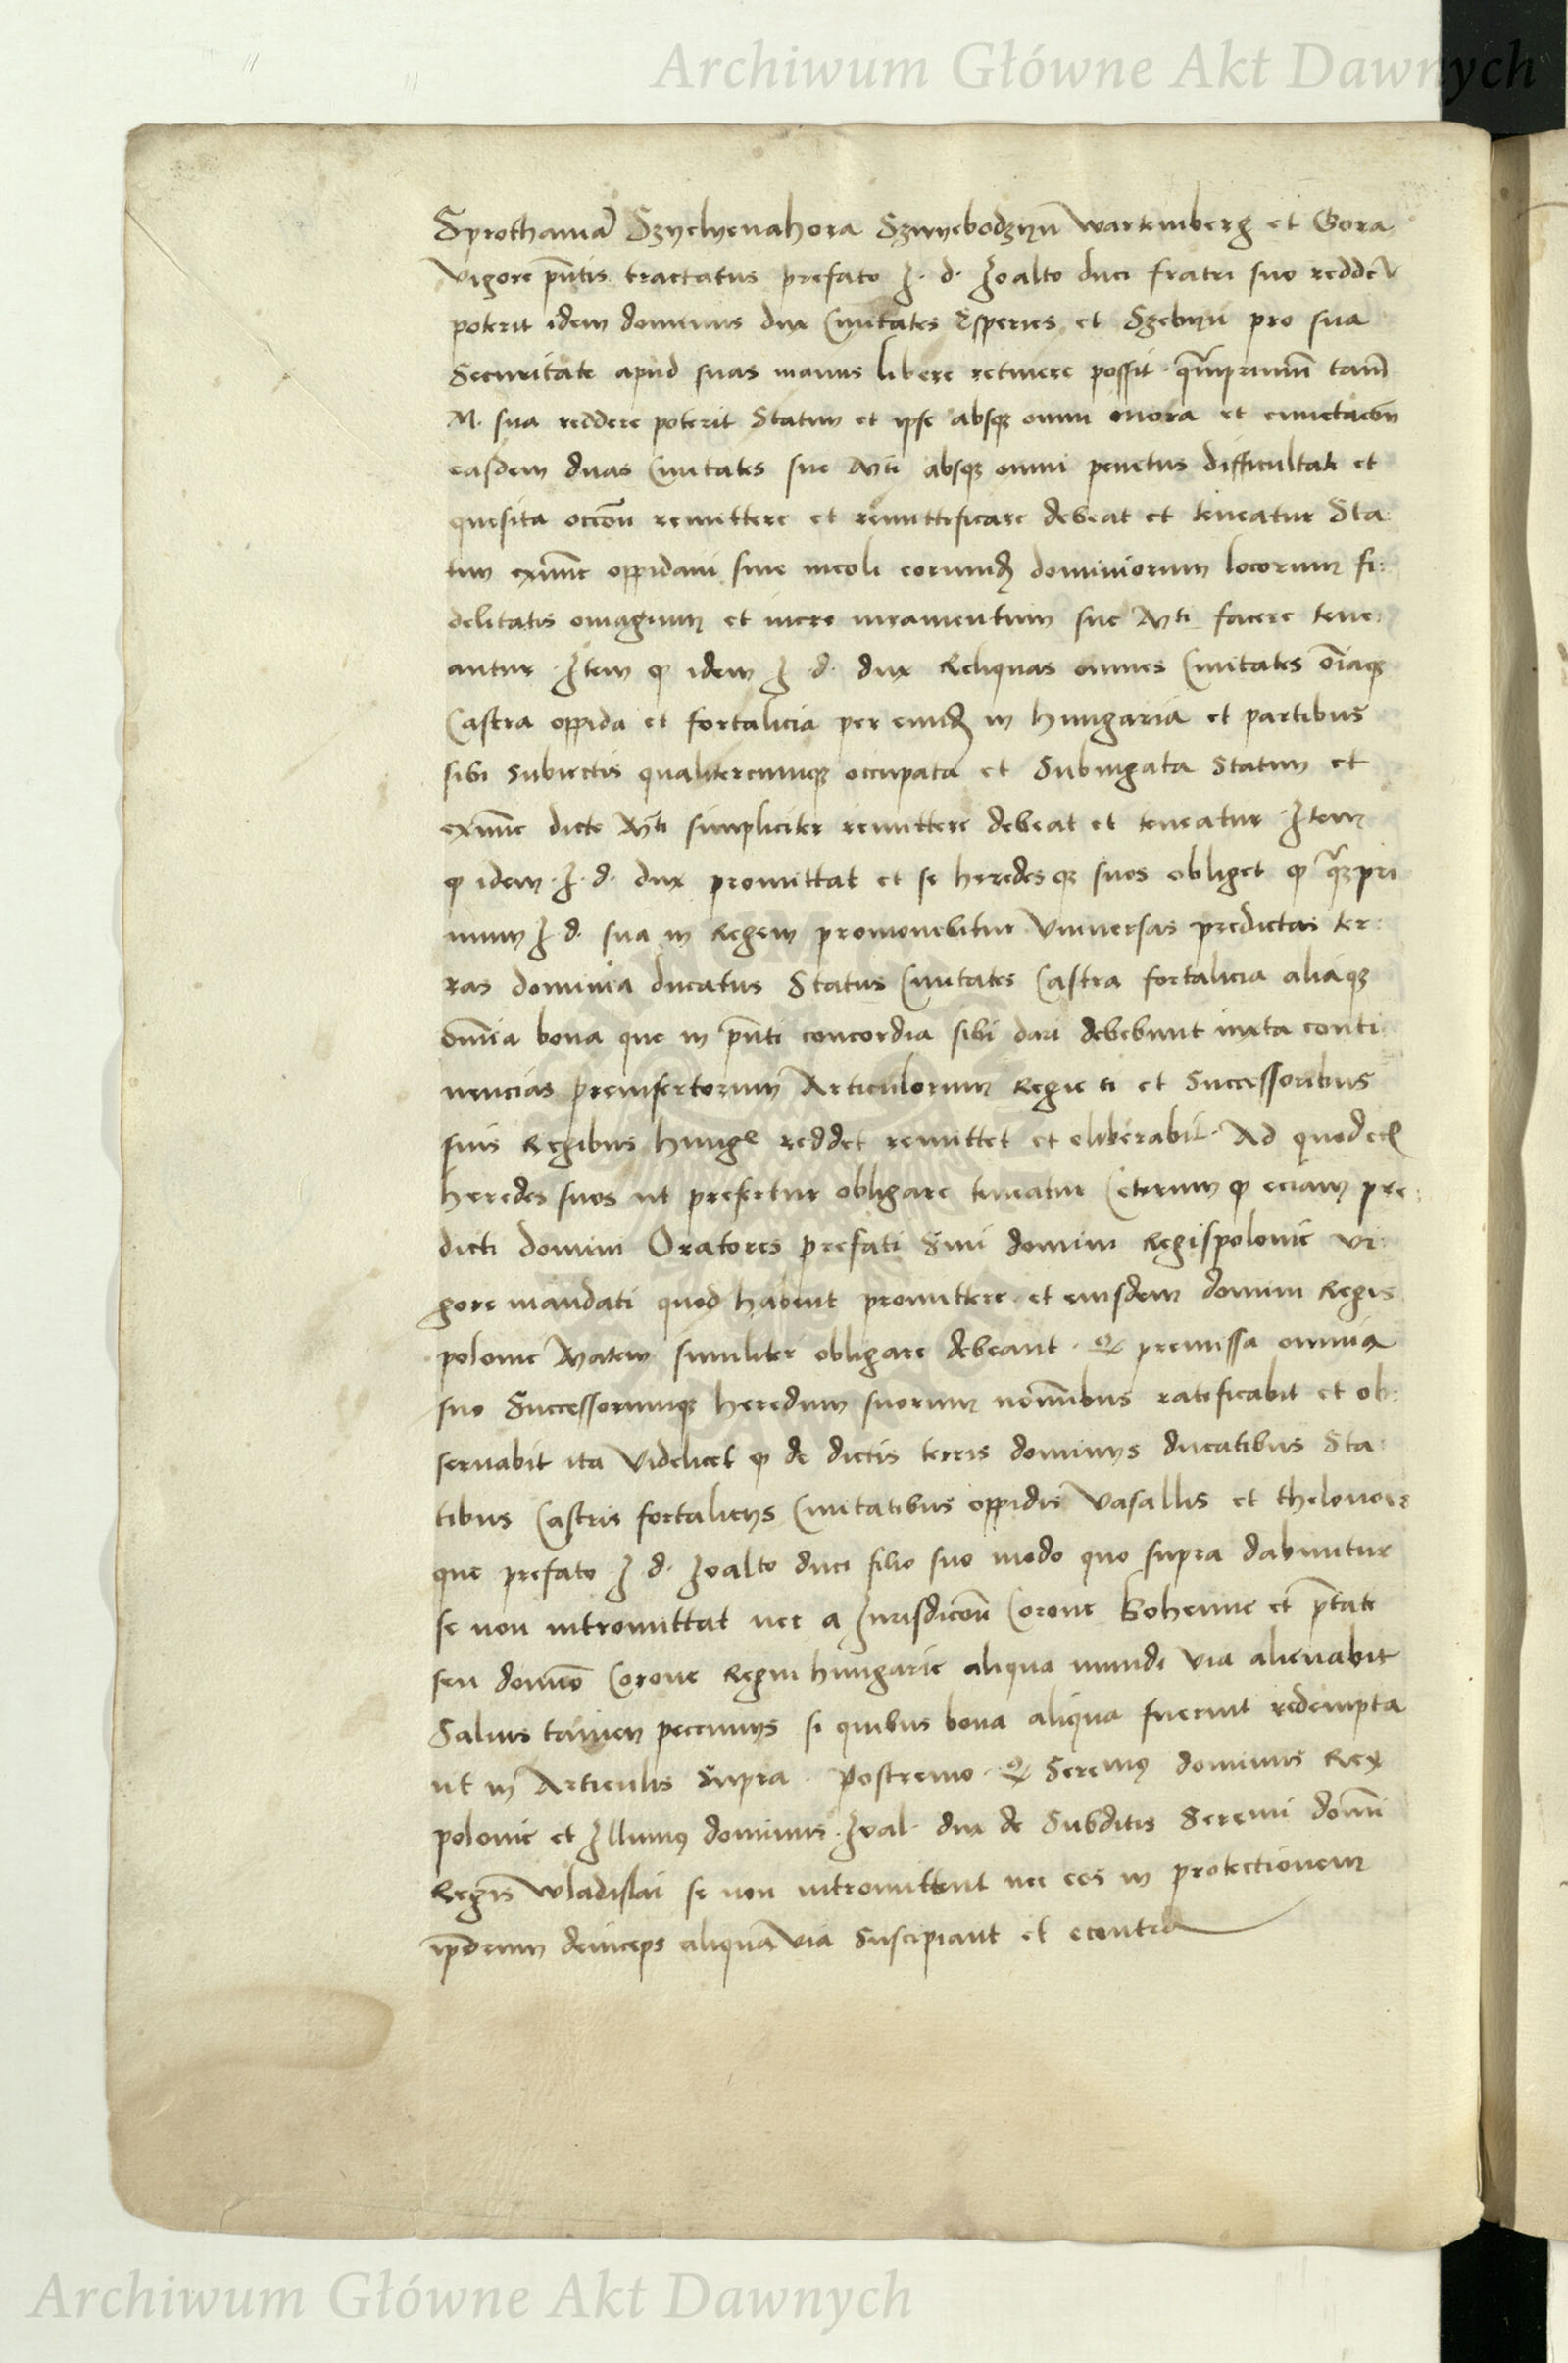 Archiwum Główne Akt Dawnych
Sprothawiā Szyelyenahora Szwyebodzyn wartemberg et Gora
vigore pn̄tis tractatus prefato I. d. Joalto duci fratri suo redder
poterit idem dominus dux Civitates Eperies et Szebnū pro sua
Securitate apud suas manus libere retinere possit. qm̄primū tam̄
M. sua reddere poterit Statim et ipse absq omni mora et cunctacōn
easdem duas Civitates sue Mti absq omni penitus difficultate et
quesita occōn remittere et remittificare debeat et teneatur Sta:
tim extunc oppidani sive incoli eorumd dominiorum locorum fi:
delitatis omagium et mere iuramentum sue Mti facere tene:
antur. Item q idem I. d. dux Reliquas omnes Civitates oīaq
Castra oppida et fortalicia per eund in hungaria et partibus
sibi subiectis qualitercumq occupata et Subiugata Statim et
extunc dicte Mti simpliciter remittere debeat et teneatur. Item
q idem. I. d. dux promittat et se heredesq suos obliget q qmpri
mum I d. sua in Regem promovebitur Universas predictas ter:
ras dominia ducatus Status Civitates Castra fortalicia aliaq
omīa bona que in pn̄ti concordia sibi dari debebunt iuxta conti
nencias preinsertorum Articulorum Regie ti et Successoribus
suis Regibus hunge reddet remittet et eliberabit. Ad quod
heredes suos ut prefertur obligare teneatur Ceterum q eciam pre:
dicti domini Oratores prefati Smi domini Regispolonie vi:
gore mandati quod habent promittere et eiusdem domini Regis
polonie Matem similiter obligare debeant. Q premissa omnia
suo Successorumq heredum suorum nominibus ratificabit et ob:
servabit ita Videlicet q de dictis terris dominys ducatibus Sta:
tibus Castris fortalicys Civitatibus oppidis Vasallis et theloneis
que prefato I d. Joalto duci filio suo modo quo supra dabuntur
se non intromittat nec a Jurisdicōn Corone bohemie et ptate
seu domīo Corone Regni hungarie aliqua mundi via alienabit
Salvis tamen pecunys si quibus bona aliqua fuerint redempta
ut in Articulis supra. Postremo. Q Serems dominus Rex
polonie et Illums dominus. Joal. dux de Subditis Seremi domī
Regis wladislai se non intromittent nec eos in protectionem
ipsdem deinceps aliqua via Suscipiant et econtra
Archiwum Główne Akt Dawnych